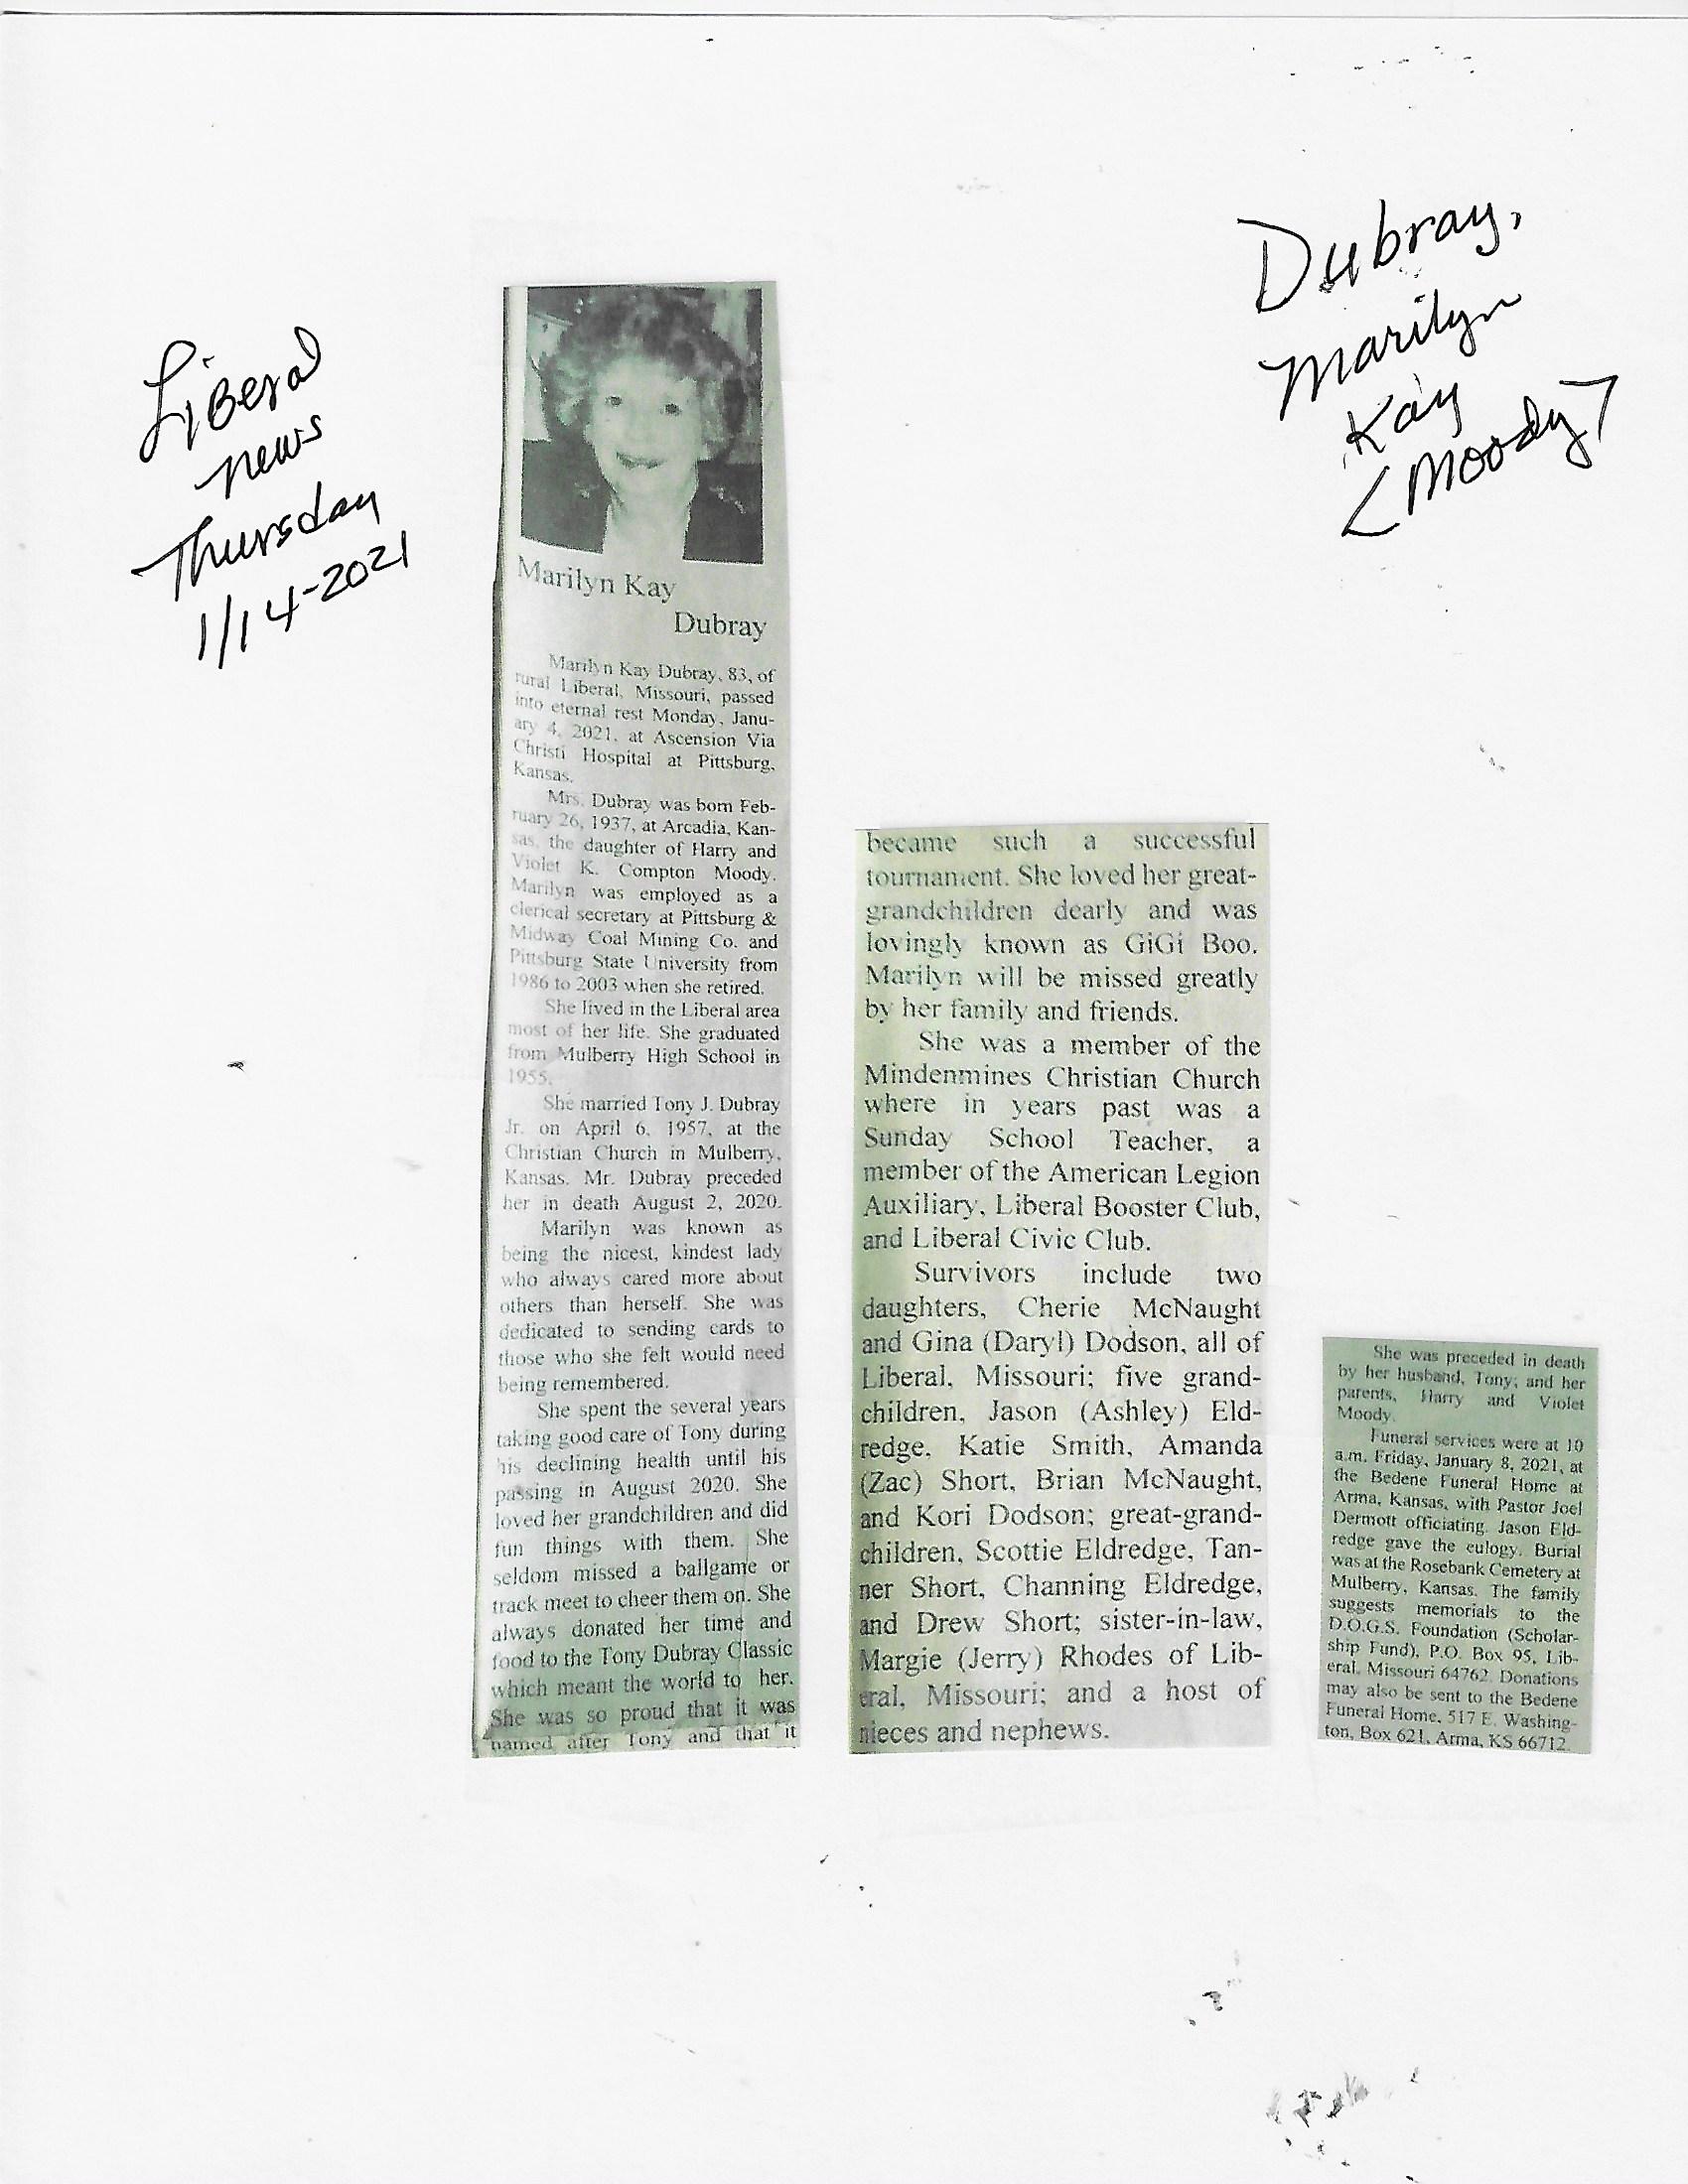 Liberal
News
Thursday
1/14-2021
Dubray,
Marilyn
Kay
<Moody>
Marilyn Kay
Dubray
Marilyn Kay Dubray, 83, of
rural Liberal, Missouri, passed
into eternal rest Monday, Janu-
ary 4, 2021, at Ascension Via
Christi Hospital at Pittsburg,
Kansas.
Mrs. Dubray was born Feb-
ruary 26, 1937, at Arcadia, Kan-
sas, the daughter of Harry and
Violet K. Compton Moody.
Marilyn was employed as a
clerical secretary at Pittsburg &
Midway Coal Mining Co. and
Pittsburg State University from
1986 to 2003 when she retired.
She lived in the Liberal area
most of her life. She graduated
from Mulberry High School in
1955.
She married Tony J. Dubray
Jr. on April 6, 1957, at the
Christian Church in Mulberry,
Kansas. Mr. Dubray preceded
her in death August 2, 2020.
Marilyn was known as
being the nicest, kindest lady
who always cared more about
others than herself. She was
dedicated to sending cards to
those who she felt would need
being remembered.
She spent the several years
taking good care of Tony during
his declining health until his
passing in August 2020. She
loved her grandchildren and did
fun things with them. She
seldom missed a ballgame or
track meet to cheer them on. She
always donated her time and
food to the Tony Dubray Classic
which meant the world to her.
She was so proud that it was
named after Tony and that it
became such a successful
tournament. She loved her great-
grandchildren dearly and was
lovingly known as GiGi Boo.
Marilyn will be missed greatly
by her family and friends.
She was a member of the
Mindenmines Christian Church
where in years past was a
Sunday School Teacher, a
member of the American Legion
Auxiliary, Liberal Booster Club,
and Liberal Civic Club.
Survivors include two
daughters, Cherie McNaught
and Gina (Daryl) Dodson, all of
Liberal, Missouri; five grand-
children, Jason (Ashley) Eld-
redge, Katie Smith, Amanda
(Zac) Short, Brian McNaught,
and Kori Dodson; great-grand-
children, Scottie Eldredge, Tan-
ner Short, Channing Eldredge,
and Drew Short; sister-in-law,
Margie (Jerry) Rhodes of Lib-
eral, Missouri; and a host of
nieces and nephews.
She was preceded in death
by her husband, Tony; and her
parents, Harry and Violet
Moody.
Funeral services were at 10
a.m. Friday, January 8, 2021, at
the Bedene Funeral Home at
Arma, Kansas, with Pastor Joel
Dermott officiating. Jason Eld-
redge gave the eulogy. Burial
was at the Rosebank Cemetery at
Mulberry, Kansas. The family
suggests memorials to the
D.O.G.S. Foundation (Scholar-
ship Fund), P.O. Box 95, Lib-
eral, Missouri 64762. Donations
may also be sent to the Bedene
Funeral Home, 517 E. Washing-
ton, Box 621, Arma, KS 66712.